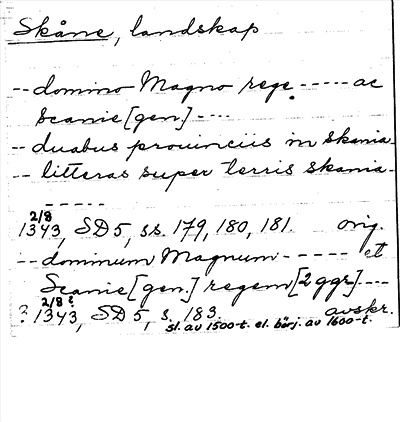 Skåne, landskap
-- domino Magno rege ----- ac
Scanie [gen] ----
-- duabus prouinciis in Skania-
-- litteras super terris Skania-
-----
2/8
1343, SD 5, ss. 179, 180, 181. orig.
-- dominum Magnum ----- et
Scanie [gen.] regem [2 ggr] ----
2/8 ?
? 1343, SD 5, s. 183. avskr.
sl. av 1500-t. el. börj. av 1600-t.